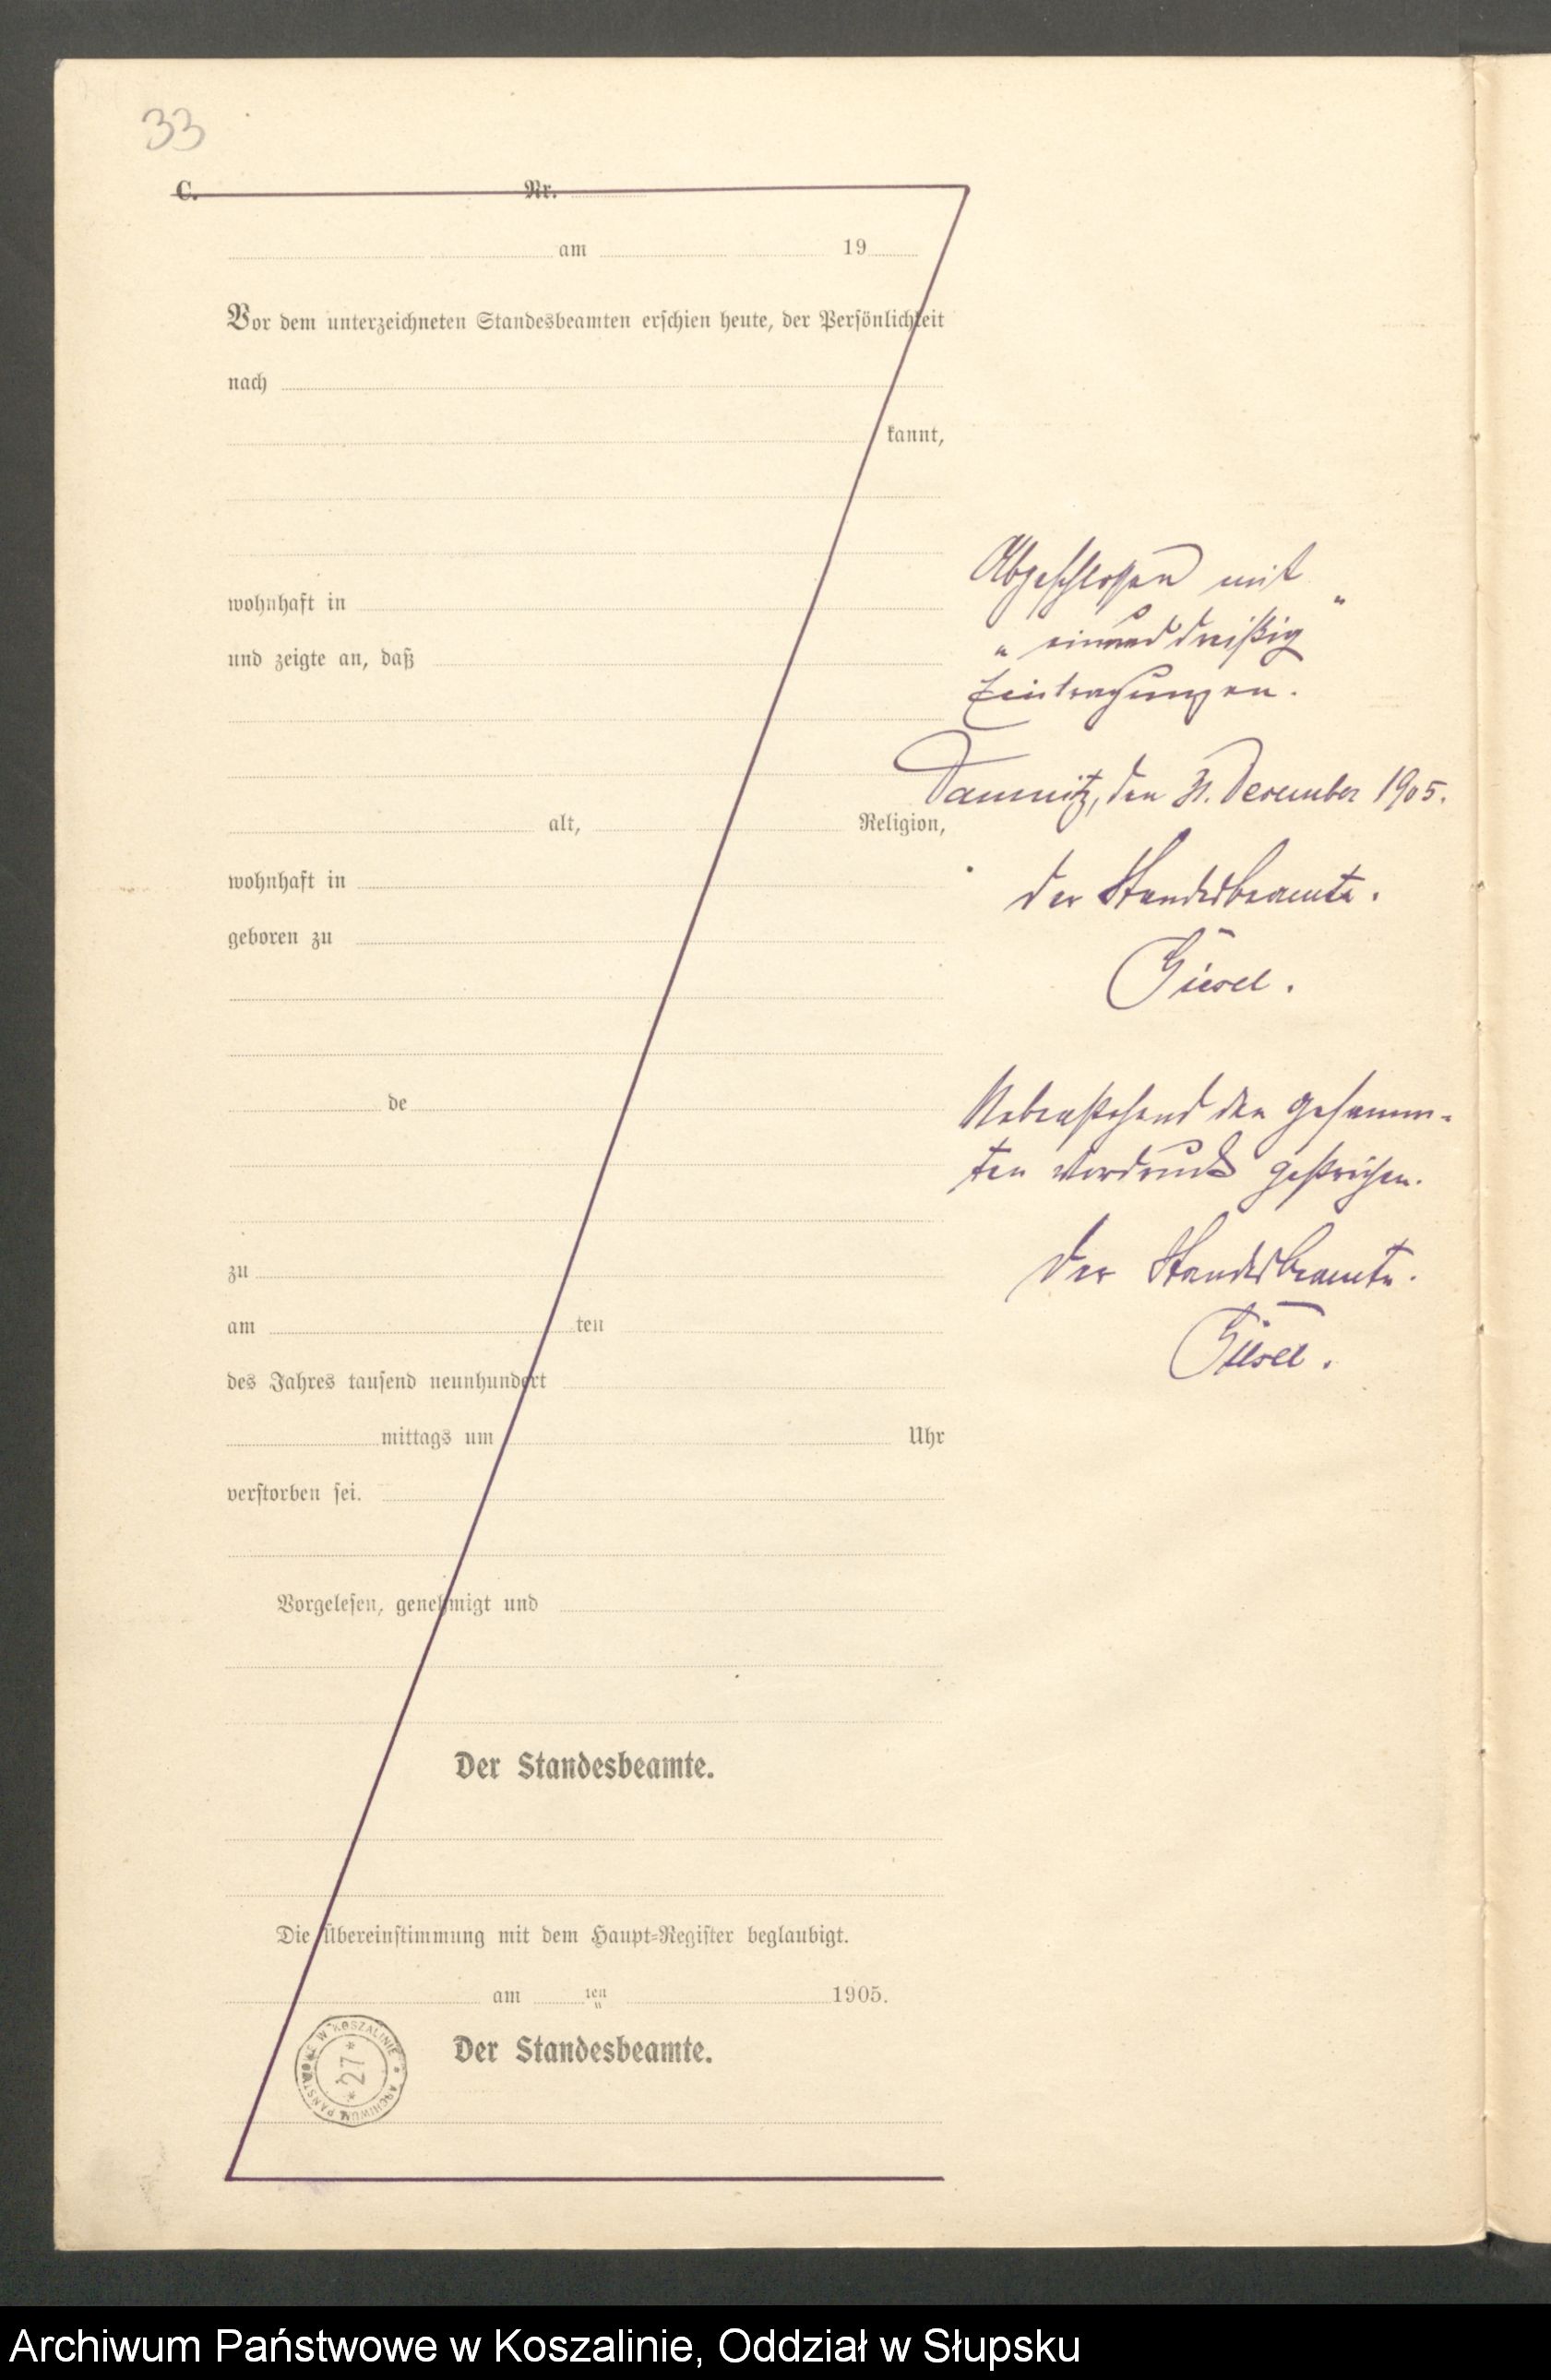 33
C. Nr.
am 19
Vor dem unterzeichneten Standesbeamten erschien heute, der Persönlichkeit
nach
kannt,
wohnhaft in
und zeigte an, daß
alt, Religion,
wohnhaft in
geboren zu
de
zu
am ten
des Jahres tausend neunhundert
mittags um Uhr
verstorben sei.
Vorgelesen, genehmigt und
Der Standesbeamte.
Die Übereinstimmung mit dem Haupt-Register beglaubigt.
am ten 1905.
Der Standesbeamte.
ARCHIWUM PAŃSTWOWE W KOSZALINIE
* 27 *
Abgeschlossen mit
„ einunddreißig "
Eintragungen.
Damnitz, den 31. Dezember 1905.
Der Standesbeamte.
Giesel.
Nebenstehend den gesamm-
ten Vordruck gestrichen.
Der Standesbeamte.
Giesel.
Archiwum Państwowe w Koszalinie, Oddział w Słupsku